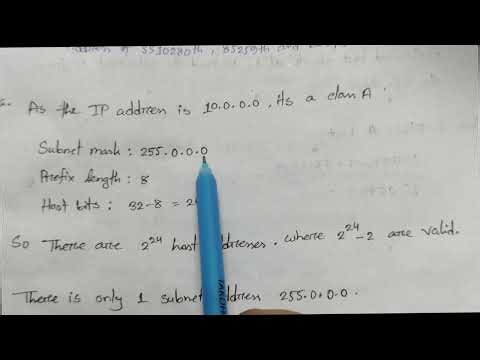 As the IP address is 10.0.0.0, its a class A
Subnet mask : 255.0.0.0
Prefix length : 8
Host bits : 32-8 = 2
So There are 2^24 host addresses. where 2^24-2 are valid.
There is only 1 subnet address 255.0.0.0.